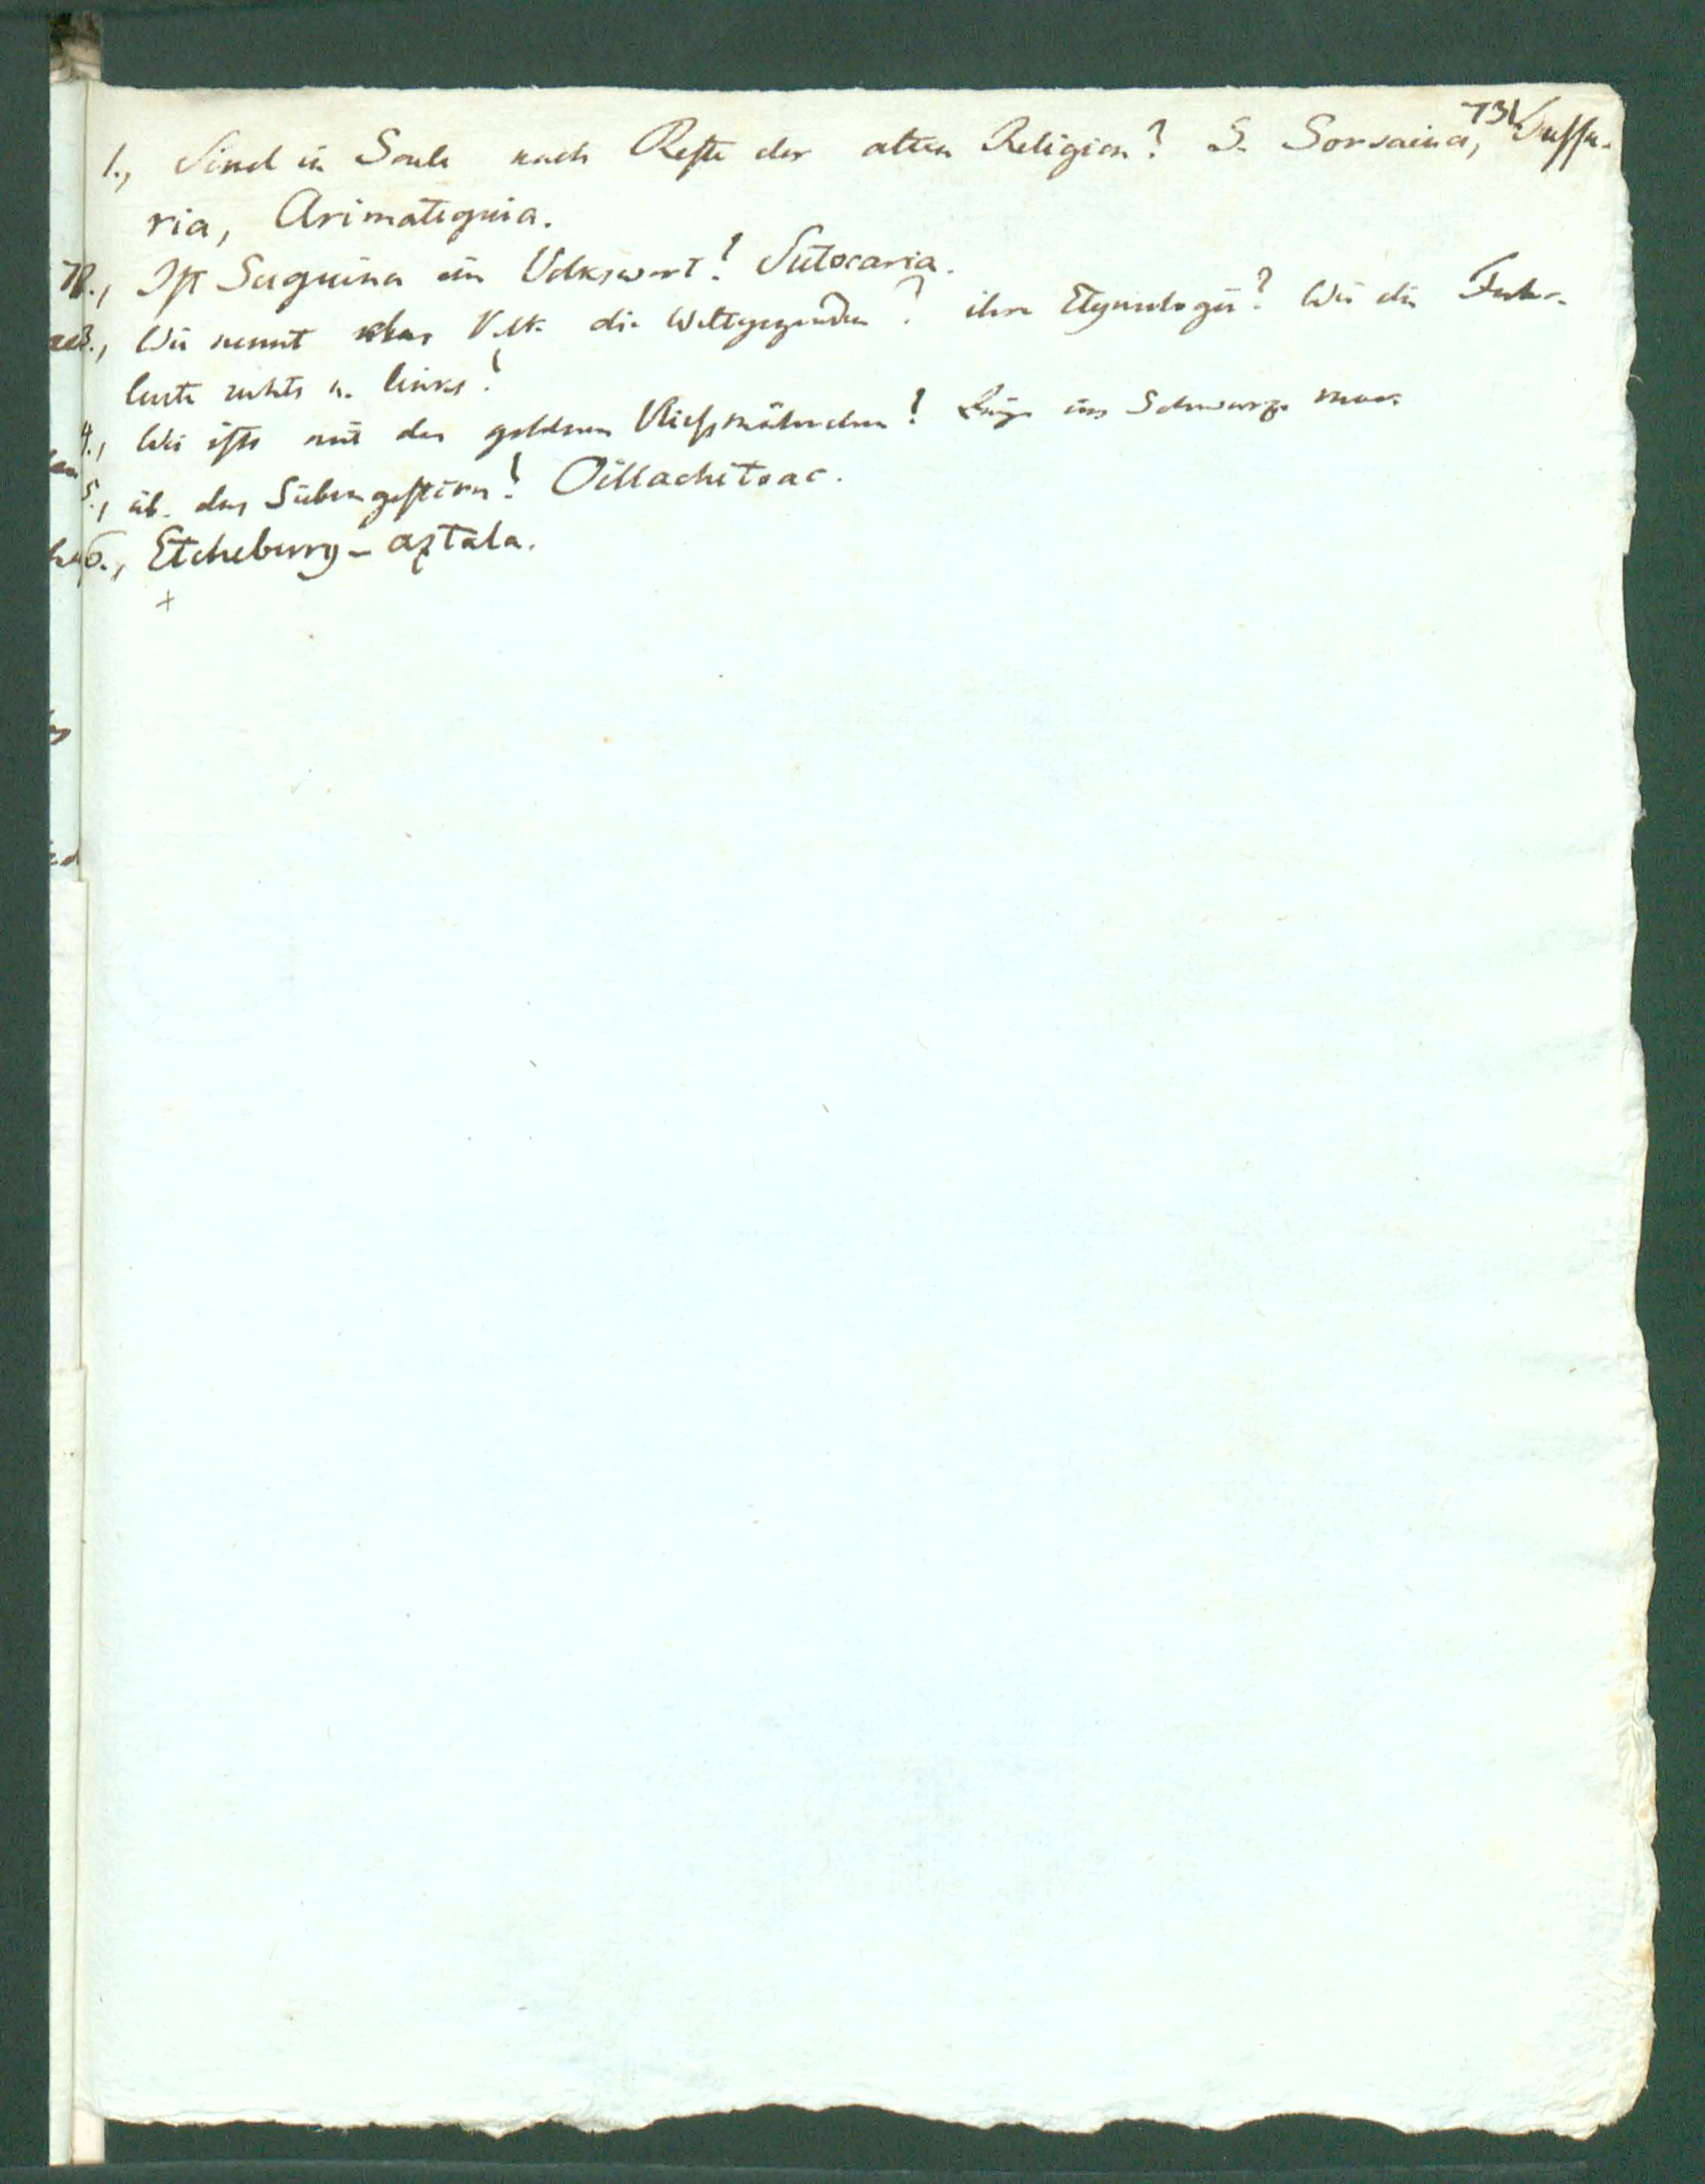 731
1., Sind in Soule noch Reste der alten Religion? S. Sorsaina, Sussu-
ria, Arimateguia.
2., Ist Suguina ein Volkswort? Sutocaria.
3., Wie nennt das Volk die Weltgegenden? ihre Etymologie? Wie die Fuhr-
leute rechts u. links?
4., Wie ists mit den goldnen Vliessmährchen? Züge ins Schwarze Meer
5., üb. das Siebengestirn? Oillachitoac.
6., Etcheberry-aztala.
+